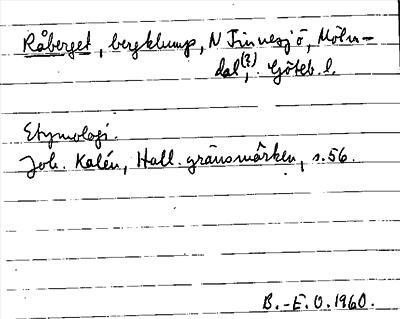 Råberget, bergklump, N Finnesjö, Möln-
dal(?), Göteb. l.
Etymologi.
Joh. Kalén, Hall. gränsmärken, s. 56.
B.-E. O. 1960.